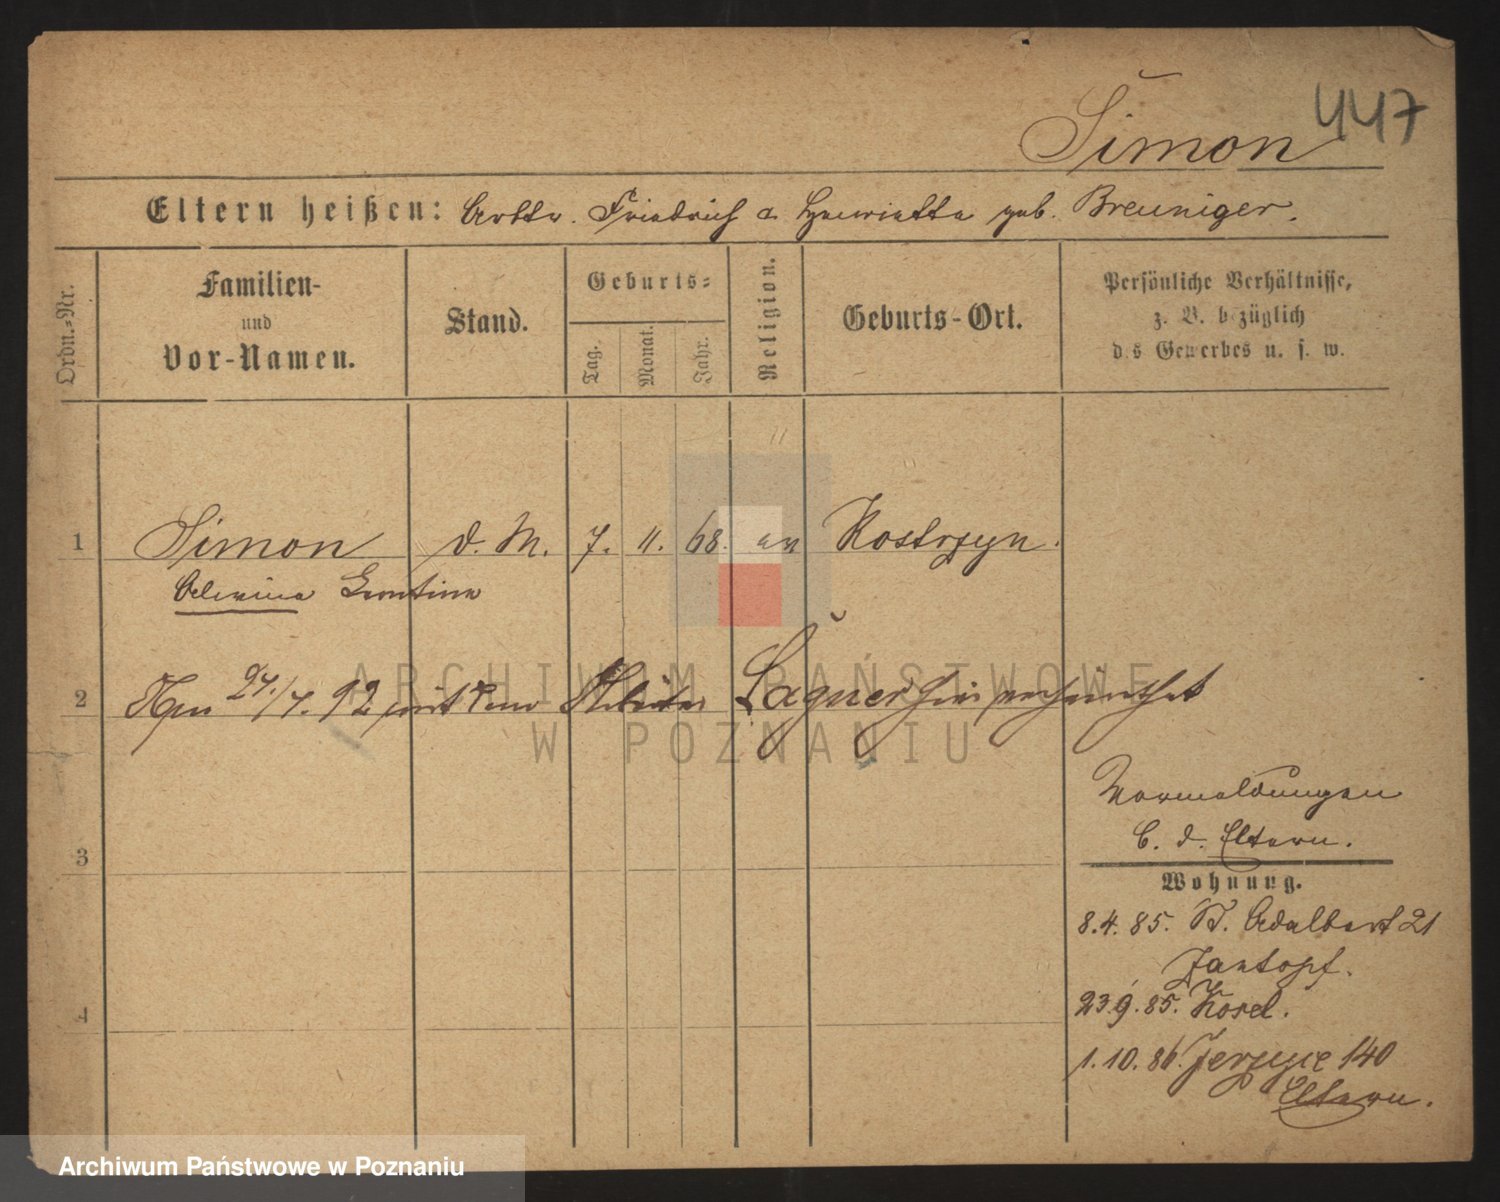 447
Simon
Eltern heißen: Arbtr. Friedrich u Henriette geb. Breuniger.
Ordn.-Nr.
Familien-
und
Vor-Namen.
Stand.
Geburts-
Tag.
Monat.
Jahr.
Religion.
Geburts-Ort.
Persönliche Verhältnisse,
z. B. bezüglich
des Gewerbes u. s. w.
1 Simon d. M. 7. 11. 68. ev Kostrzyn.
Leontine
2 27./7. 92 mit dem Arbeiter hier verheirathet
ARCHIWUM PAŃSTWOWE
W POZNANIU
Vormeldungen
b. d. Eltern.
3
Wohnung.
8.4.85. St. Adalbert 21
23.9.85. Kosel.
4
1.10.86. Jerzyce 140
Eltern.
Archiwum Państwowe w Poznaniu